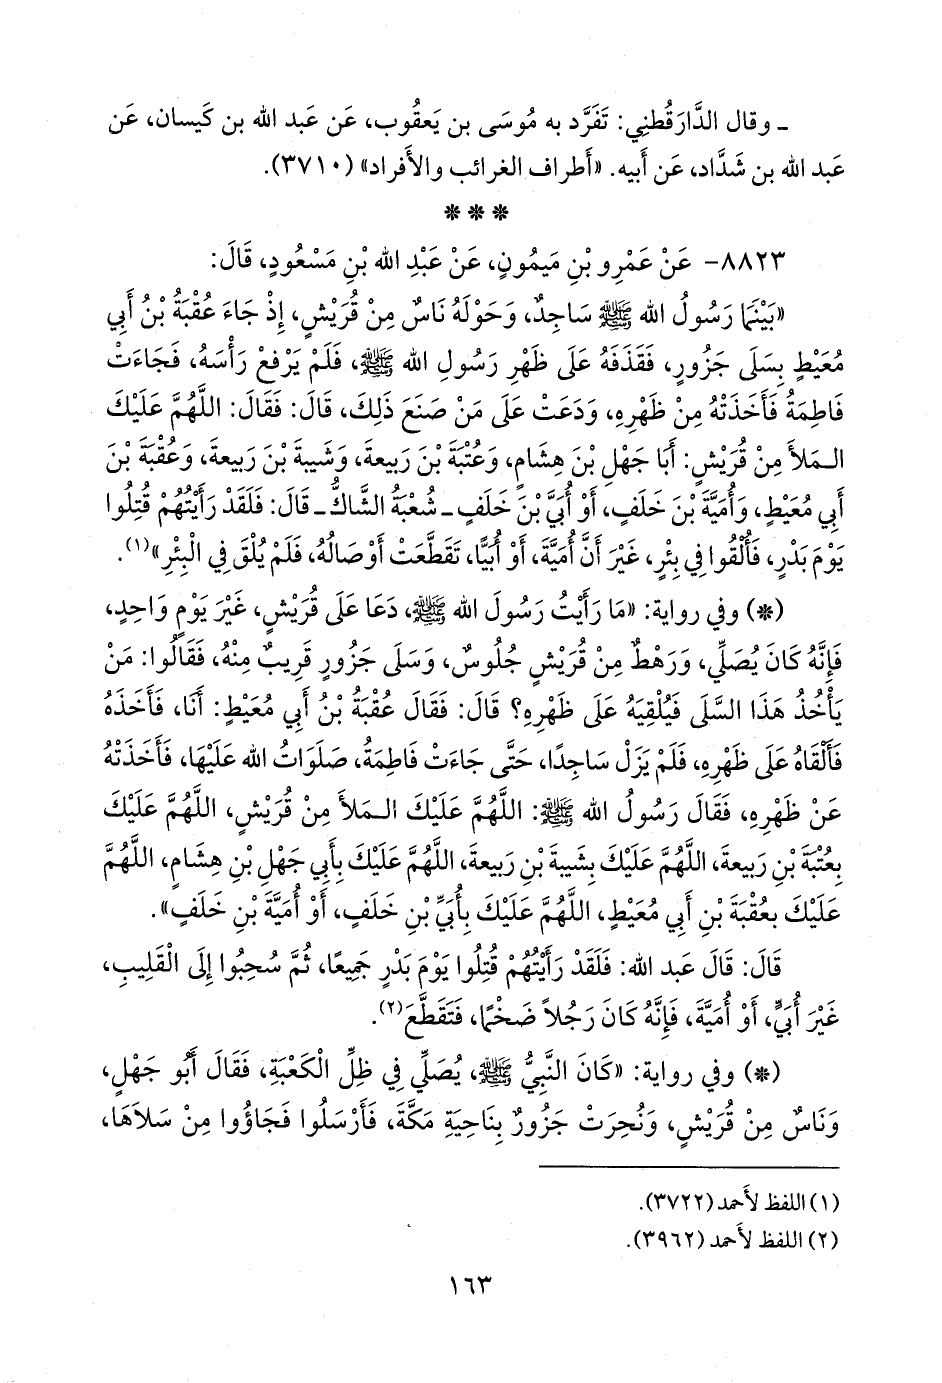 ـ وقال الدَّارَقُطني: تَفَرَّد به مُوسَى بن يَعقُوب، عَن عَبد الله بن كَيسان، عَن
عَبد الله بن شَدَّاد، عَن أَبيه. «أَطراف الغرائب والأَفراد» (٣٧١٠).
* * *
٨٨٢٣- عَنْ عَمْرِو بْنِ مَيمُونٍ، عَنْ عَبْدِ الله بْنِ مَسْعُودٍ، قَالَ:
«بَيْنَمَا رَسُولُ الله ﷺ سَاجِدٌ، وَحَوْلَهُ نَاسٌ مِنْ قُرَيْشٍ، إِذْ جَاءَ عُقْبَةُ بْنُ أَبِي
مُعَيْطٍ بِسَلَى جَزُورٍ، فَقَذَفَهُ عَلَى ظَهْرِ رَسُولِ الله ﷺ، فَلَمْ يَرْفَعْ رَأْسَهُ، فَجَاءَتْ
فَاطِمَةُ فَأَخَذَتْهُ مِنْ ظَهْرِهِ، وَدَعَتْ عَلَى مَنْ صَنَعَ ذَلِكَ، قَالَ: فَقَالَ: اللَّهُمَّ عَلَيْكَ
الـمَلأَ مِنْ قُرَيْشٍ: أَبَا جَهْلِ بْنَ هِشَامٍ، وَعُتْبَةَ بْنَ رَبِيعةَ، وَشَيبةَ بْنَ رَبِيعةَ، وَعُقْبَةَ بْنَ
أَبِي مُعَيْطٍ، وَأُمَيَّةَ بْنَ خَلَفٍ، أَوْ أُبَيَّ بْنَ خَلَفٍ ـ شُعْبَةُ الشَّاكُّ ـ قَالَ: فَلَقَدْ رَأَيْتُهُمْ قُتِلُوا
يَوْمَ بَدْرٍ، فَأُلْقُوا فِي بِئْرٍ، غَيْرَ أَنَّ أُمَيَّةَ، أَوْ أُبَيًّا، تَقَطَّعَتْ أَوْصَالُهُ، فَلَمْ يُلْقَ فِي الْبِئْرِ»(١).
(*) وفي رواية: «مَا رَأَيْتُ رَسُولَ الله ﷺ، دَعَا عَلَى قُرَيْشٍ، غَيْرَ يَوْمٍ وَاحِدٍ،
فَإِنَّهُ كَانَ يُصَلِّي، وَرَهْطٌ مِنْ قُرَيْشٍ جُلُوسٌ، وَسَلَى جَزُورٍ قَرِيبٌ مِنْهُ، فَقَالُوا: مَنْ
يَأْخُذُ هَذَا السَّلَى فَيُلْقِيَهُ عَلَى ظَهْرِهِ؟ قَالَ: فَقَالَ عُقْبَةُ بْنُ أَبِي مُعَيْطٍ: أَنَا، فَأَخَذَهُ
فَأَلْقَاهُ عَلَى ظَهْرِهِ، فَلَمْ يَزَلْ سَاجِدًا، حَتَّى جَاءَتْ فَاطِمَةُ، صَلَوَاتُ الله عَلَيْهَا، فَأَخَذَتْهُ
عَنْ ظَهْرِهِ، فَقَالَ رَسُولُ الله ﷺ: اللَّهُمَّ عَلَيْكَ الـمَلأَ مِنْ قُرَيْشٍ، اللَّهُمَّ عَلَيْكَ
بِعُتْبَةَ بْنِ رَبِيعةَ، اللَّهُمَّ عَلَيْكَ بِشَيبةَ بْنِ رَبِيعةَ، اللَّهُمَّ عَلَيْكَ بِأَبِي جَهْلِ بْنِ هِشَامٍ، اللَّهُمَّ
عَلَيْكَ بِعُقْبَةَ بْنِ أَبِي مُعَيْطٍ، اللَّهُمَّ عَلَيْكَ بِأُبَيِّ بْنِ خَلَفٍ، أَوْ أُمَيَّةَ بْنِ خَلَفٍ».
قَالَ: قَالَ عَبد الله: فَلَقَدْ رَأَيْتُهُمْ قُتِلُوا يَوْمَ بَدْرٍ جَمِيعًا، ثُمَّ سُحِبُوا إِلَى الْقَلِيبِ،
غَيْرَ أُبَيٍّ، أَوْ أُمَيَّةَ، فَإِنَّهُ كَانَ رَجُلاً ضَخْمًا، فَتَقَطَّعَ(٢).
(*) وفي رواية: «كَانَ النَّبِيُّ ﷺ، يُصَلِّي فِي ظِلِّ الْكَعْبَةِ، فَقَالَ أَبُو جَهْلٍ،
وَنَاسٌ مِنْ قُرَيْشٍ، وَنُحِرَتْ جَزُورٌ بِنَاحِيَةِ مَكَّةَ، فَأَرْسَلُوا فَجَاؤُوا مِنْ سَلاَهَا،
(١) اللفظ لأَحمد (٣٧٢٢).
(٢) اللفظ لأَحمد (٣٩٦٢).
١٦٣